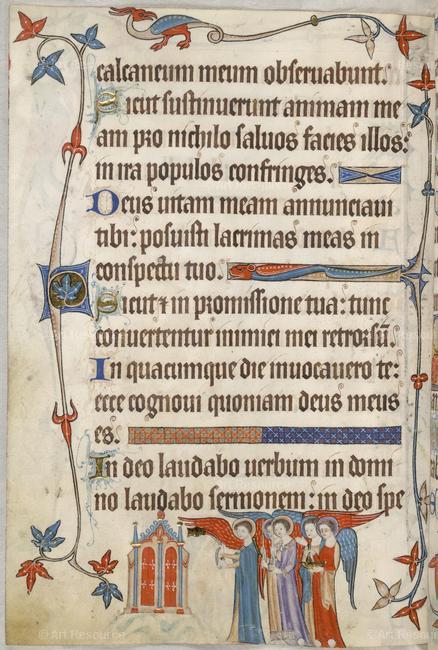 calcaneum meum obseruabunt.
Sicut sustinuerunt animam me
am pro nichilo saluos facies illos:
in ira populos confringes.
Deus uitam meam annunciaui
tibi: posuisti lacrimas meas in
conspectu tuo.
Sicut ⁊ in promissione tua: tunc
conuertentur inimici mei retrorsū.
In quacumque die inuocauero te:
ecce cognoui quoniam deus meus
es.
In deo laudabo uerbum in domi
no laudabo sermonem: in deo spe
© Art Resource
© Art Resource